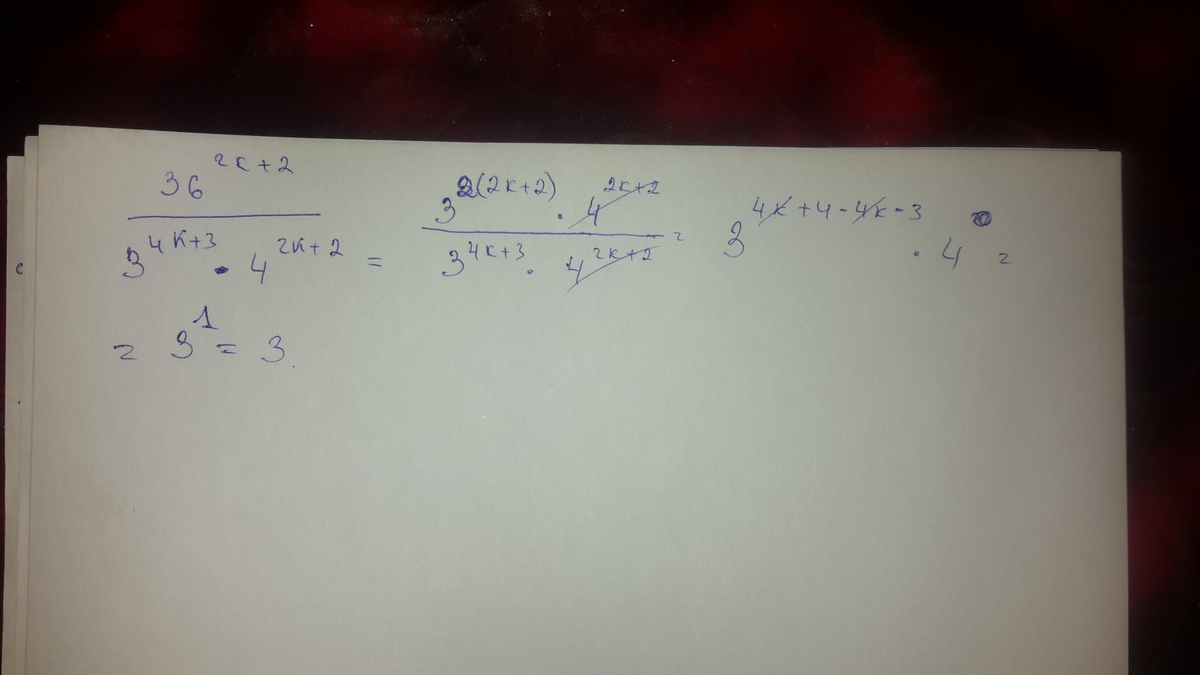 36^{2k+2} / (3^{4k+3} · 4^{2k+2}) = (3^{2(2k+2)} · 4^{2k+2}) / (3^{4k+3} · 4^{2k+2}) = 3^{4k+4-4k-3} · 4^{0} =
= 3^{1} = 3.